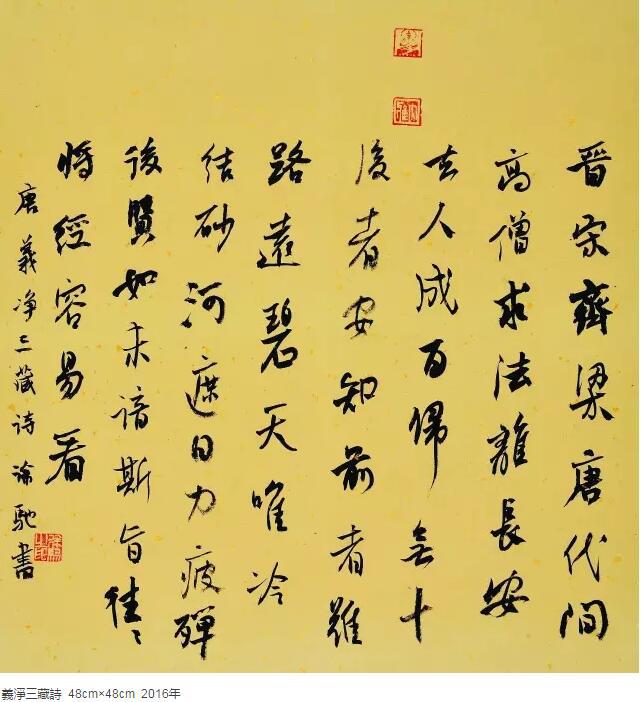 晋宋齊梁唐代間
高僧求法離長安
去人成百歸無十
後者安知前者難
路遠碧天唯冷
结砂河遮日力疲殫
後賢如未諳斯旨往〻
將經容易看
唐義净三藏诗 馳書
義淨三藏詩 48cm×48cm 2016年